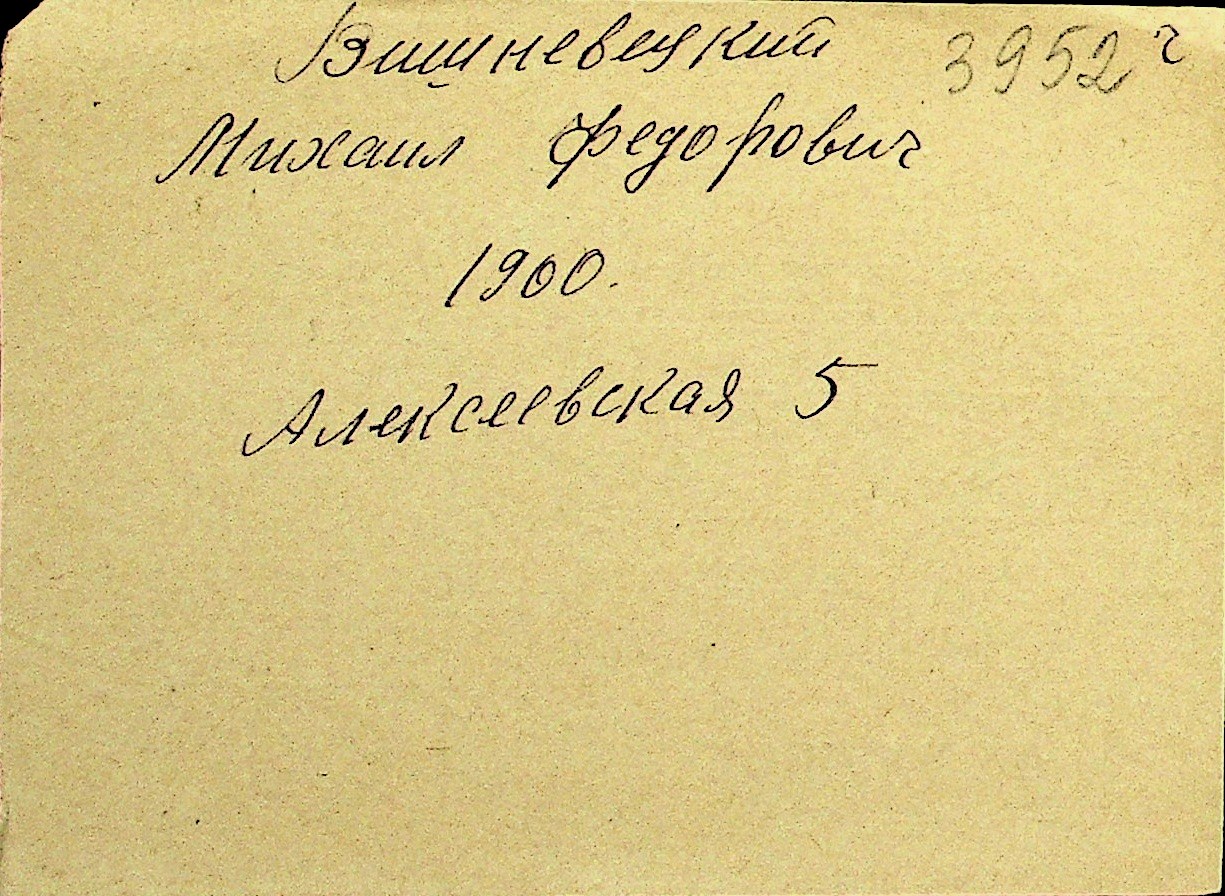 Вишневецкий 3952 ч
Михаил Федорович
1900.
Алексеевская 5